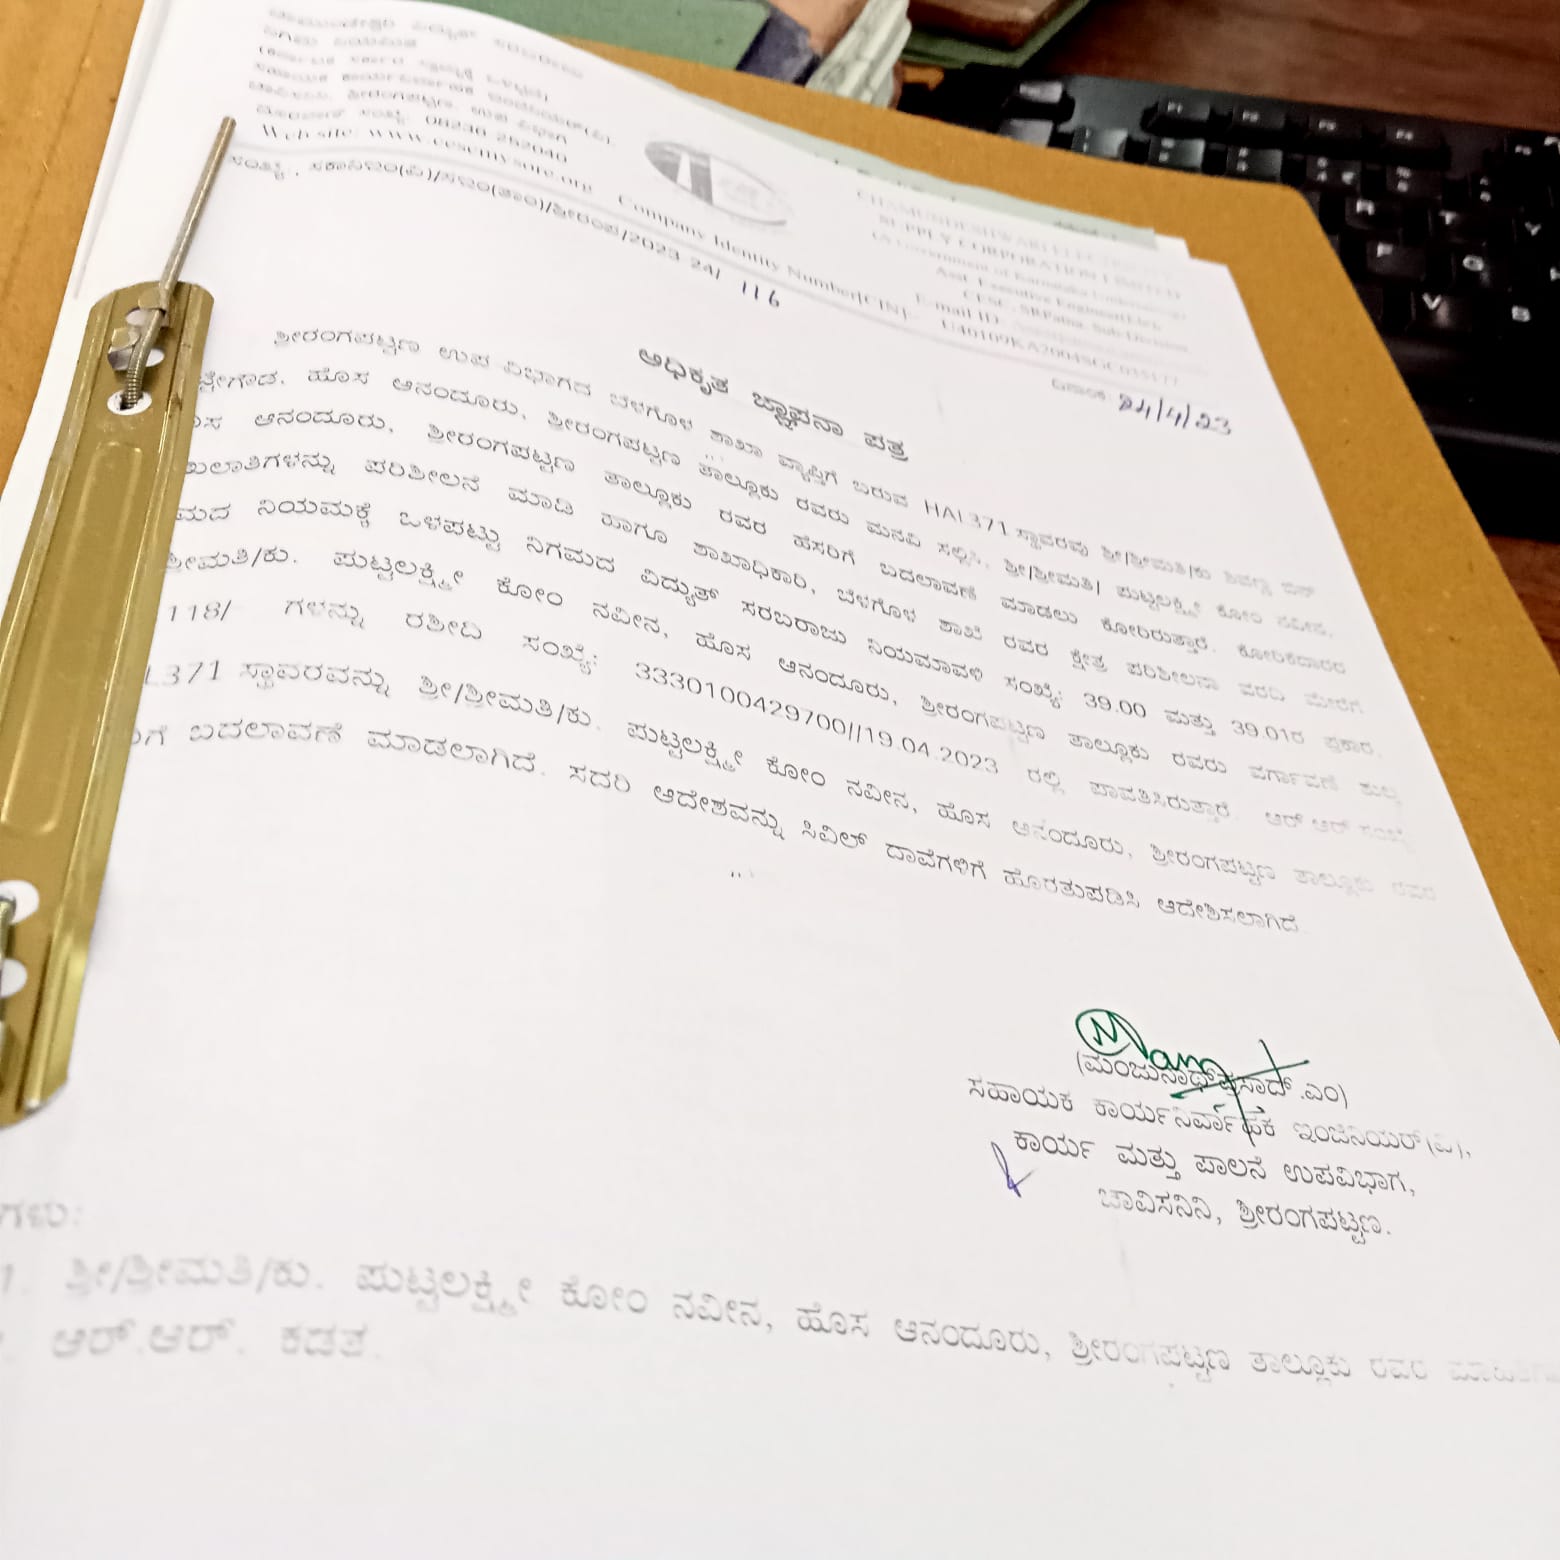 ಚಾಮುಂಡೇಶ್ವರಿ ವಿದ್ಯುತ್ ಸರಬರಾಜು
ನಿಗಮ ನಿಯಮಿತ
(ಕರ್ನಾಟಕ ಸರ್ಕಾರ ಸ್ವಾಮ್ಯಕ್ಕೆ ಒಳಪಟ್ಟಿದೆ)
ಸಹಾಯಕ ಕಾರ್ಯನಿರ್ವಾಹಕ ಇಂಜಿನಿಯರ್(ವಿ),
ಚಾವಿಸನಿನಿ, ಶ್ರೀರಂಗಪಟ್ಟಣ, ಉಪ ವಿಭಾಗ
ದೂರವಾಣಿ ಸಂಖ್ಯೆ: 08236 252040
Web site: www.cescmysore.org
CHAMUNDESHWARI ELECTRICITY
SUPPLY CORPORATION LIMITED
(A Government of Karnataka Undertaking)
Asst. Executive Engineer(Ele),
CESC, SRPatna, Sub-Division
E-mail ID:
Company Identity Number(CIN):- U40109KA2004SGC035177
ಸಂಖ್ಯೆ: ಸಕಾನಿಇಂ(ವಿ)/ಸಇಂ(ತಾಂ)/ಶ್ರೀರಂಪ/2023 24/ 116
ದಿನಾಂಕ: 24/4/23
ಅಧಿಕೃತ ಜ್ಞಾಪನಾ ಪತ್ರ
ಶ್ರೀರಂಗಪಟ್ಟಣ ಉಪ ವಿಭಾಗದ ಬೆಳಗೊಳ ಶಾಖಾ ವ್ಯಾಪ್ತಿಗೆ ಬರುವ HAL371 ಸ್ಥಾವರವು ಶ್ರೀ/ಶ್ರೀಮತಿ/ಕು
ಹೊಸ ಆನಂದೂರು, ಶ್ರೀರಂಗಪಟ್ಟಣ ತಾಲ್ಲೂಕು ರವರು ಮನವಿ ಸಲ್ಲಿಸಿ, ಶ್ರೀ/ಶ್ರೀಮತಿ/ ಪುಟ್ಟಲಕ್ಷ್ಮೀ ಕೋಂ ನವೀನ,
ಆನಂದೂರು, ಶ್ರೀರಂಗಪಟ್ಟಣ ತಾಲ್ಲೂಕು ರವರ ಹೆಸರಿಗೆ ಬದಲಾವಣೆ ಮಾಡಲು ಕೋರಿರುತ್ತಾರೆ. ಕೋರಿಕೆದಾರರ
ಪರಿಶೀಲನೆ ಮಾಡಿ ಹಾಗೂ ಶಾಖಾಧಿಕಾರಿ, ಬೆಳಗೊಳ ಶಾಖೆ ರವರ ಕ್ಷೇತ್ರ ಪರಿಶೀಲನಾ ವರದಿ ಮೇರೆಗೆ
ನಿಯಮಕ್ಕೆ ಒಳಪಟ್ಟು ನಿಗಮದ ವಿದ್ಯುತ್ ಸರಬರಾಜು ನಿಯಮಾವಳಿ ಸಂಖ್ಯೆ: 39.00 ಮತ್ತು 39.01ರ ಪ್ರಕಾರ,
ಶ್ರೀಮತಿ/ಕು. ಪುಟ್ಟಲಕ್ಷ್ಮೀ ಕೋಂ ನವೀನ, ಹೊಸ ಆನಂದೂರು, ಶ್ರೀರಂಗಪಟ್ಟಣ ತಾಲ್ಲೂಕು ರವರು ವರ್ಗಾವಣೆ ಶುಲ್ಕ
118/ ಗಳನ್ನು ರಶೀದಿ ಸಂಖ್ಯೆ: 3330100429700//19.04.2023 ರಲ್ಲಿ ಪಾವತಿಸಿರುತ್ತಾರೆ. ಆರ್ ಆರ್ ಸಂಖ್ಯೆ
L371 ಸ್ಥಾವರವನ್ನು ಶ್ರೀ/ಶ್ರೀಮತಿ/ಕು. ಪುಟ್ಟಲಕ್ಷ್ಮೀ ಕೋಂ ನವೀನ, ಹೊಸ ಆನಂದೂರು, ಶ್ರೀರಂಗಪಟ್ಟಣ ತಾಲ್ಲೂಕು ರವರ
ಬದಲಾವಣೆ ಮಾಡಲಾಗಿದೆ. ಸದರಿ ಆದೇಶವನ್ನು ಸಿವಿಲ್ ದಾವೆಗಳಿಗೆ ಹೊರತುಪಡಿಸಿ ಆದೇಶಿಸಲಾಗಿದೆ
(ಮಂಜುನಾಥ್ ಪ್ರಸಾದ್ .ಎಂ)
ಸಹಾಯಕ ಕಾರ್ಯನಿರ್ವಾಹಕ ಇಂಜಿನಿಯರ್(ವಿ),
ಕಾರ್ಯ ಮತ್ತು ಪಾಲನೆ ಉಪವಿಭಾಗ,
ಚಾವಿಸನಿನಿ, ಶ್ರೀರಂಗಪಟ್ಟಣ.
ಗಳು:
1. ಶ್ರೀ/ಶ್ರೀಮತಿ/ಕು. ಪುಟ್ಟಲಕ್ಷ್ಮೀ ಕೋಂ ನವೀನ, ಹೊಸ ಆನಂದೂರು, ಶ್ರೀರಂಗಪಟ್ಟಣ ತಾಲ್ಲೂಕು ರವರ
ಆರ್.ಆರ್. ಕಡತ.